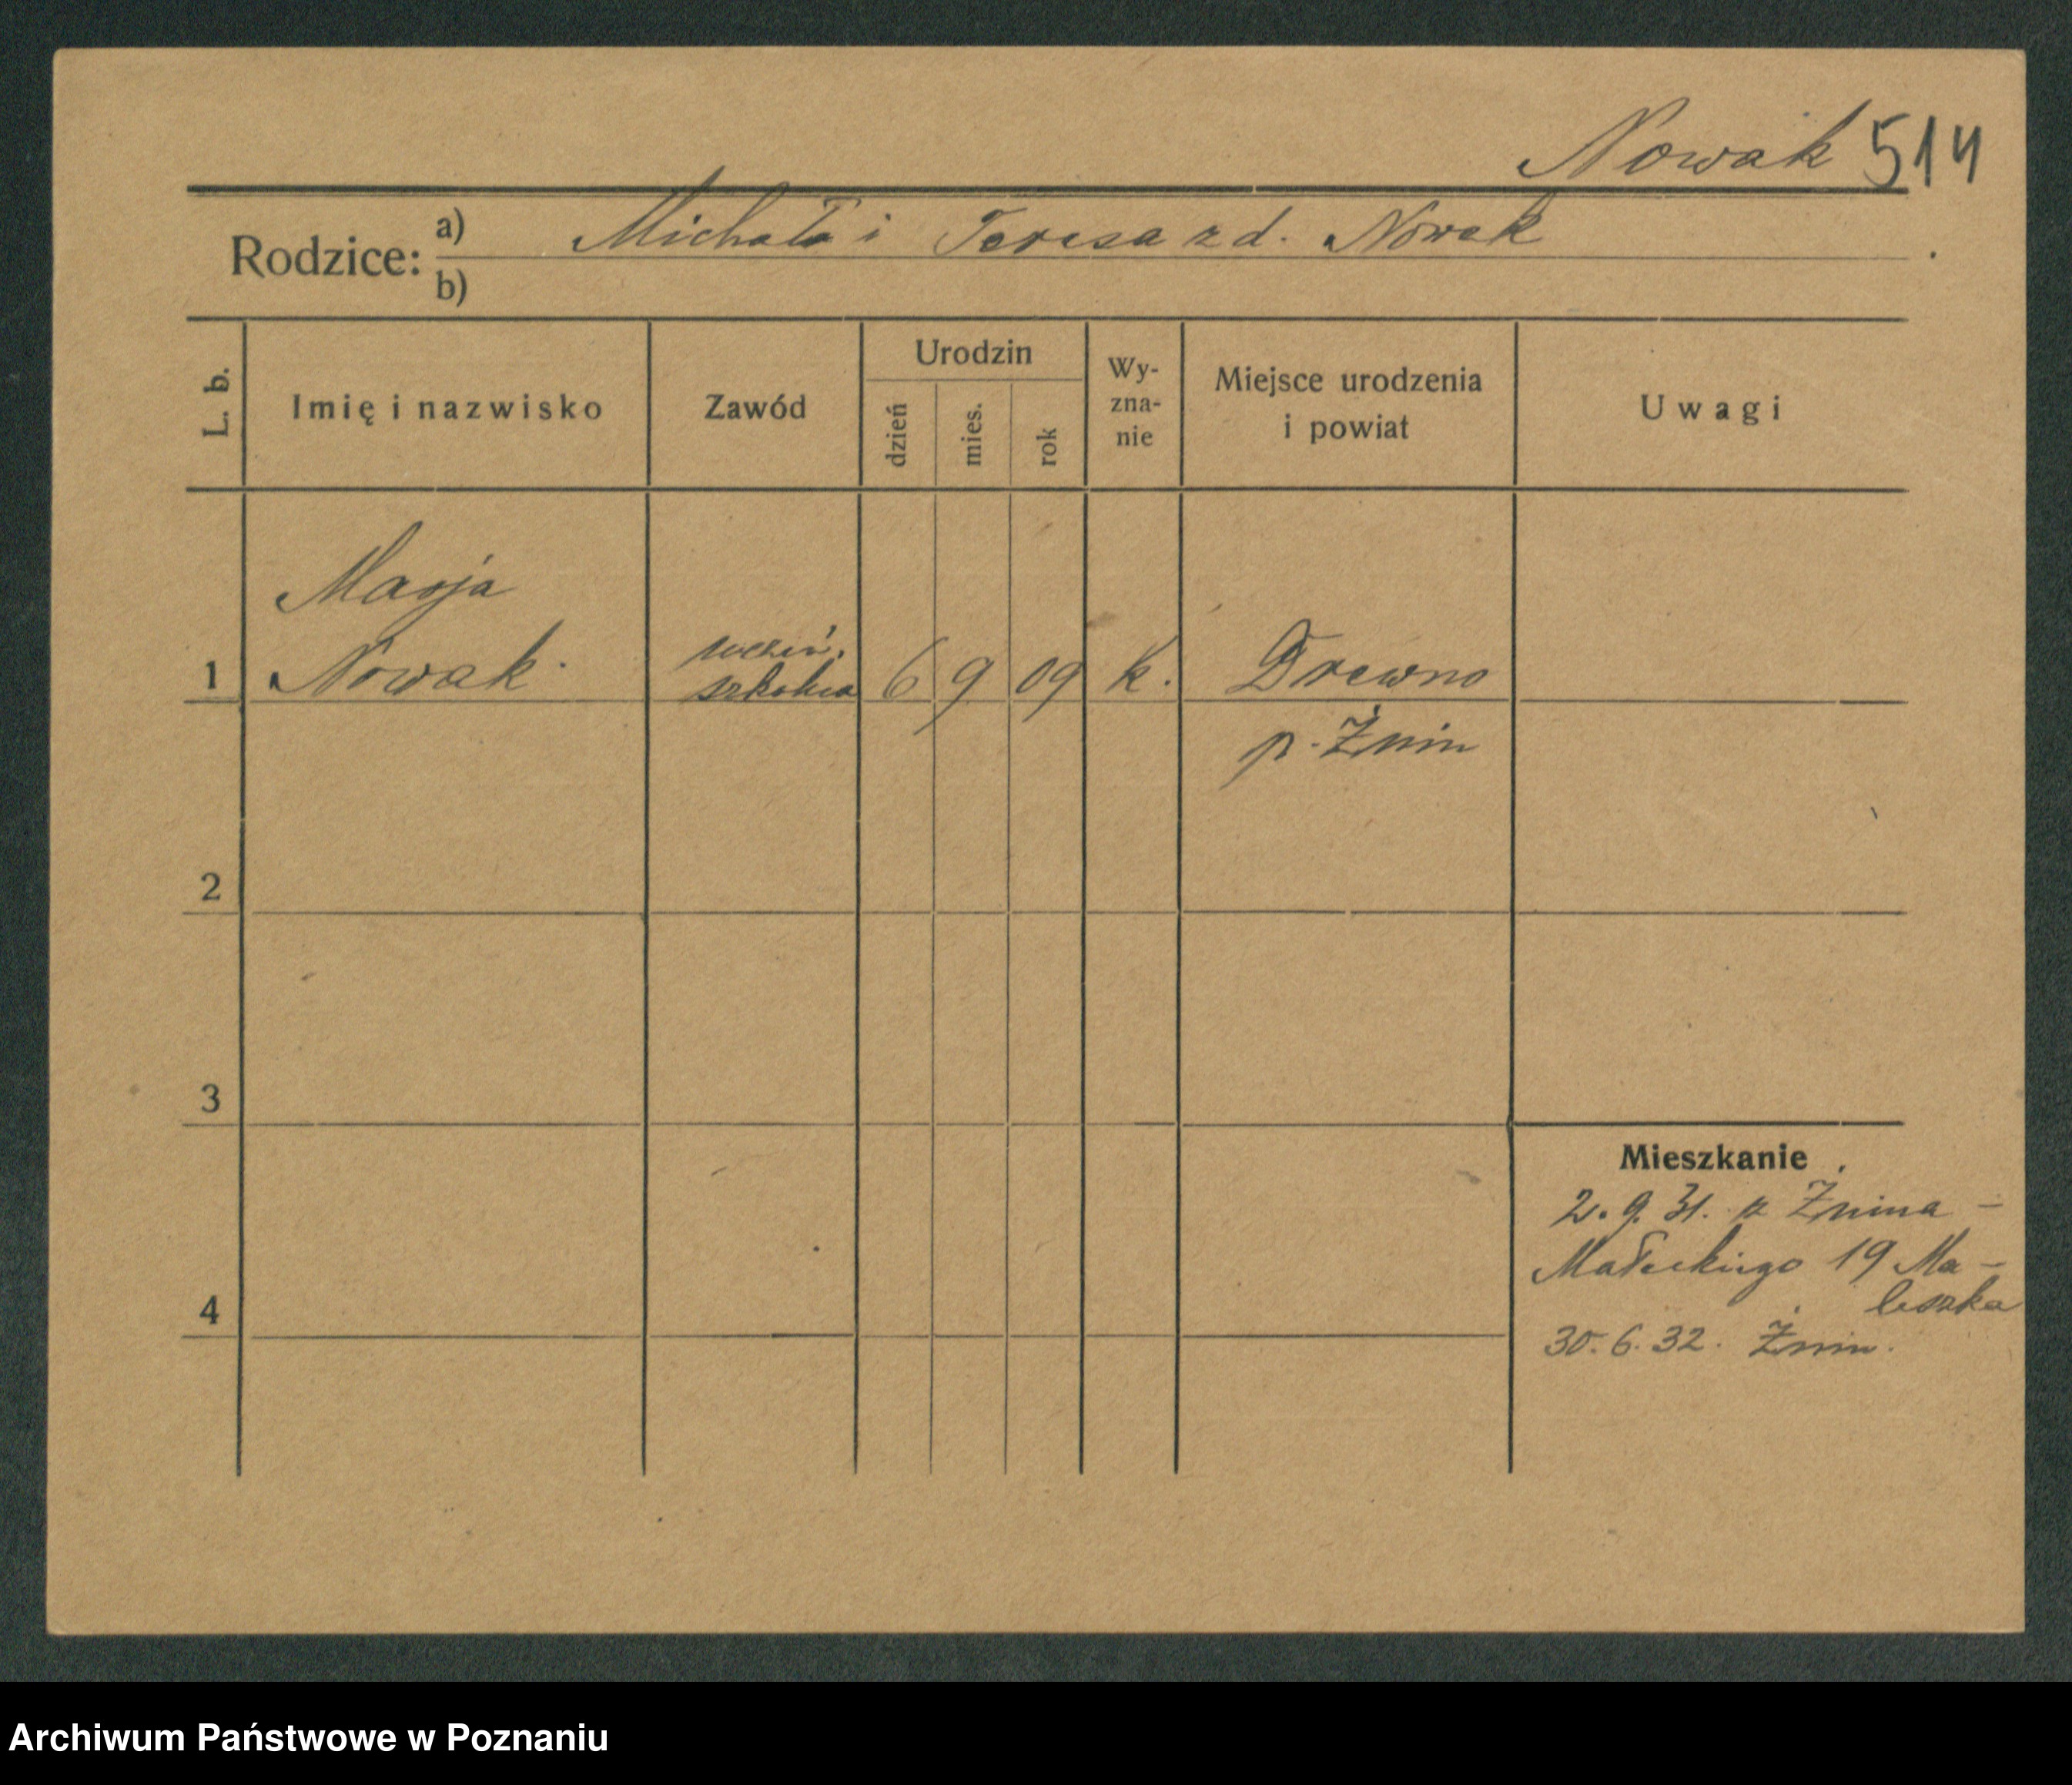 Nowak 514
Rodzice: a) Michała i Teresa z d. Nowak
b)
L. b.
Imię i nazwisko
Zawód
Urodzin
dzień
mies.
rok
Wy-
zna-
nie
Miejsce urodzenia
i powiat
Uwagi
Marja
1 Nowak. 6 9 09 k. Drewno
p. Żnin
2
3
4
Mieszkanie
2. 9. 31. z Żnina -
Małeckiego 19 Ma-
leszka
30. 6. 32. Żnin.
Archiwum Państwowe w Poznaniu